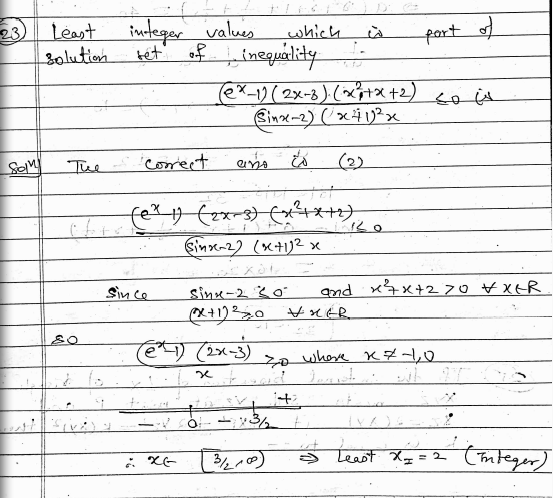 23) Least integer values which is part of
solution set of inequality
(e^x-1)(2x-3)(x²+x+2) / (sinx-2)(x+1)²x ≤0 is
Solⁿ The correct ans is (2)
(e^x-1)(2x-3)(x²+x+2) / (sinx-2)(x+1)² x ≤0
Since sinx-2 ≤0 and x²+x+2 >0 ∀ x∈R
(x+1)² ≥0 ∀ x∈R
so
(e^x-1)(2x-3) / x ≥0 where x≠-1,0
- 0 - 3/2 +
∴ x∈ [3/2,∞) ⇒ Least x_I = 2 (Integer)